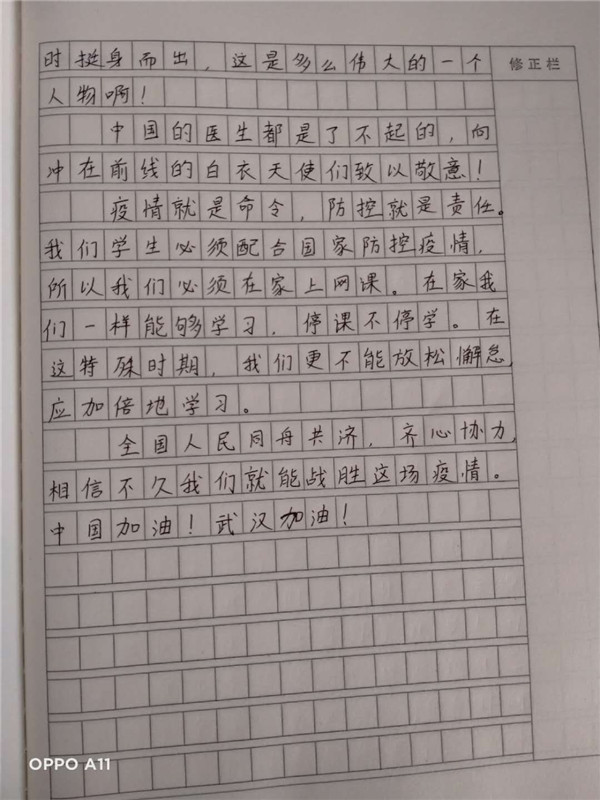 时挺身而出，这是多么伟大的一个
修正栏
人物啊！
中国的医生都是了不起的，向
冲在前线的白衣天使们致以敬意！
疫情就是命令，防控就是责任。
我们学生必须配合国家防控疫情，
所以我们必须在家上网课。在家我
们一样能够学习，停课不停学。在
这特殊时期，我们更不能放松懈怠，
应加倍地学习。
全国人民同舟共济，齐心协力，
相信不久我们就能战胜这场疫情。
中国加油！武汉加油！
OPPO A11